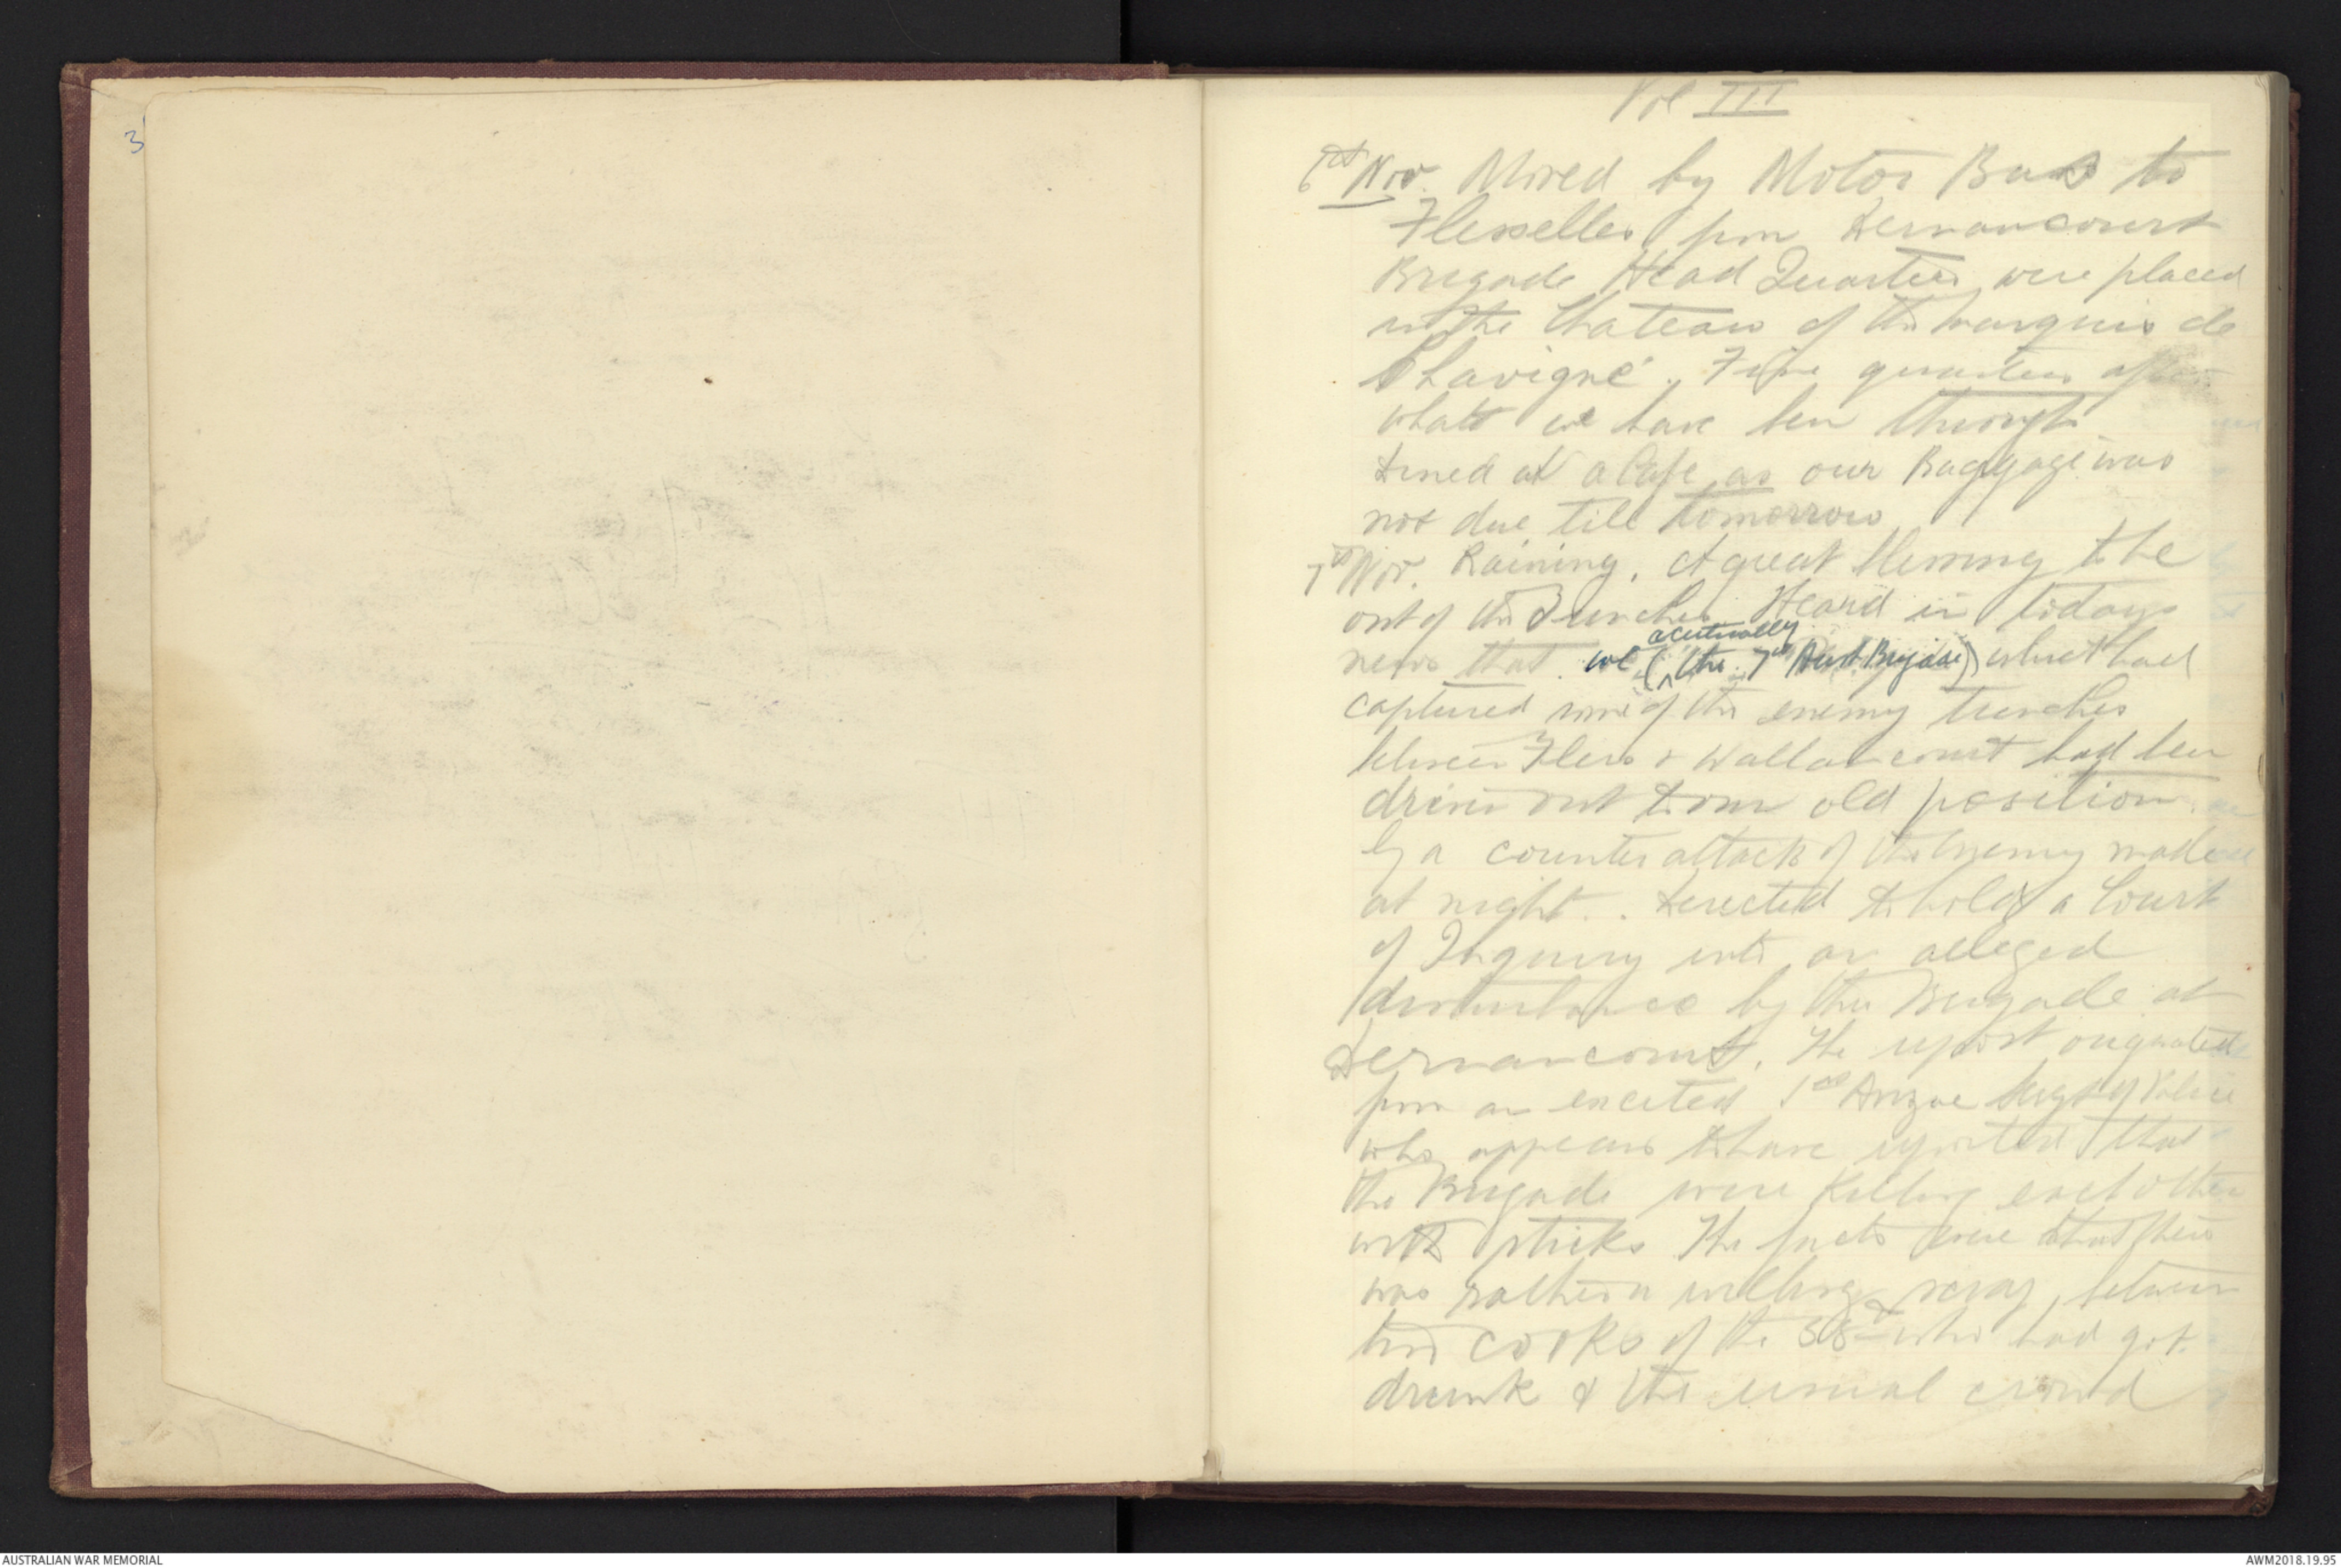 3
Vol III
6th Nov. Moved by Motor Bus to
Flesselles from Dernancourt
Brigade Head Quarters were placed
in the Chateau of the Marquis de
Chavigné. Fine quarters after
what we have been through
Dined at a Cafe as our Baggage was
not due till tomorrow
7th Nov. Raining. A great blessing to be
out of the Trenches. Heard in todays
news that we (actually the 7th Aust. Brigade) which had
captured some of the enemy trenches
between Flers & Wallancourt had been
driven out to our old position
by a counter attack of the Enemy made
at night. Directed to hold a Court
of Inquiry into an alleged
disturbance by this Brigade at
Dernancourt. The report originated
from an excited 1st Anzac Sergt of Police
who appears to have reported that
the Brigade were killing each other
with sticks. The facts were that there
was rather a willing scrap between
two cooks of the 58th who had got
drunk & the usual crowd
AUSTRALIAN WAR MEMORIAL
AWM2018.19.95